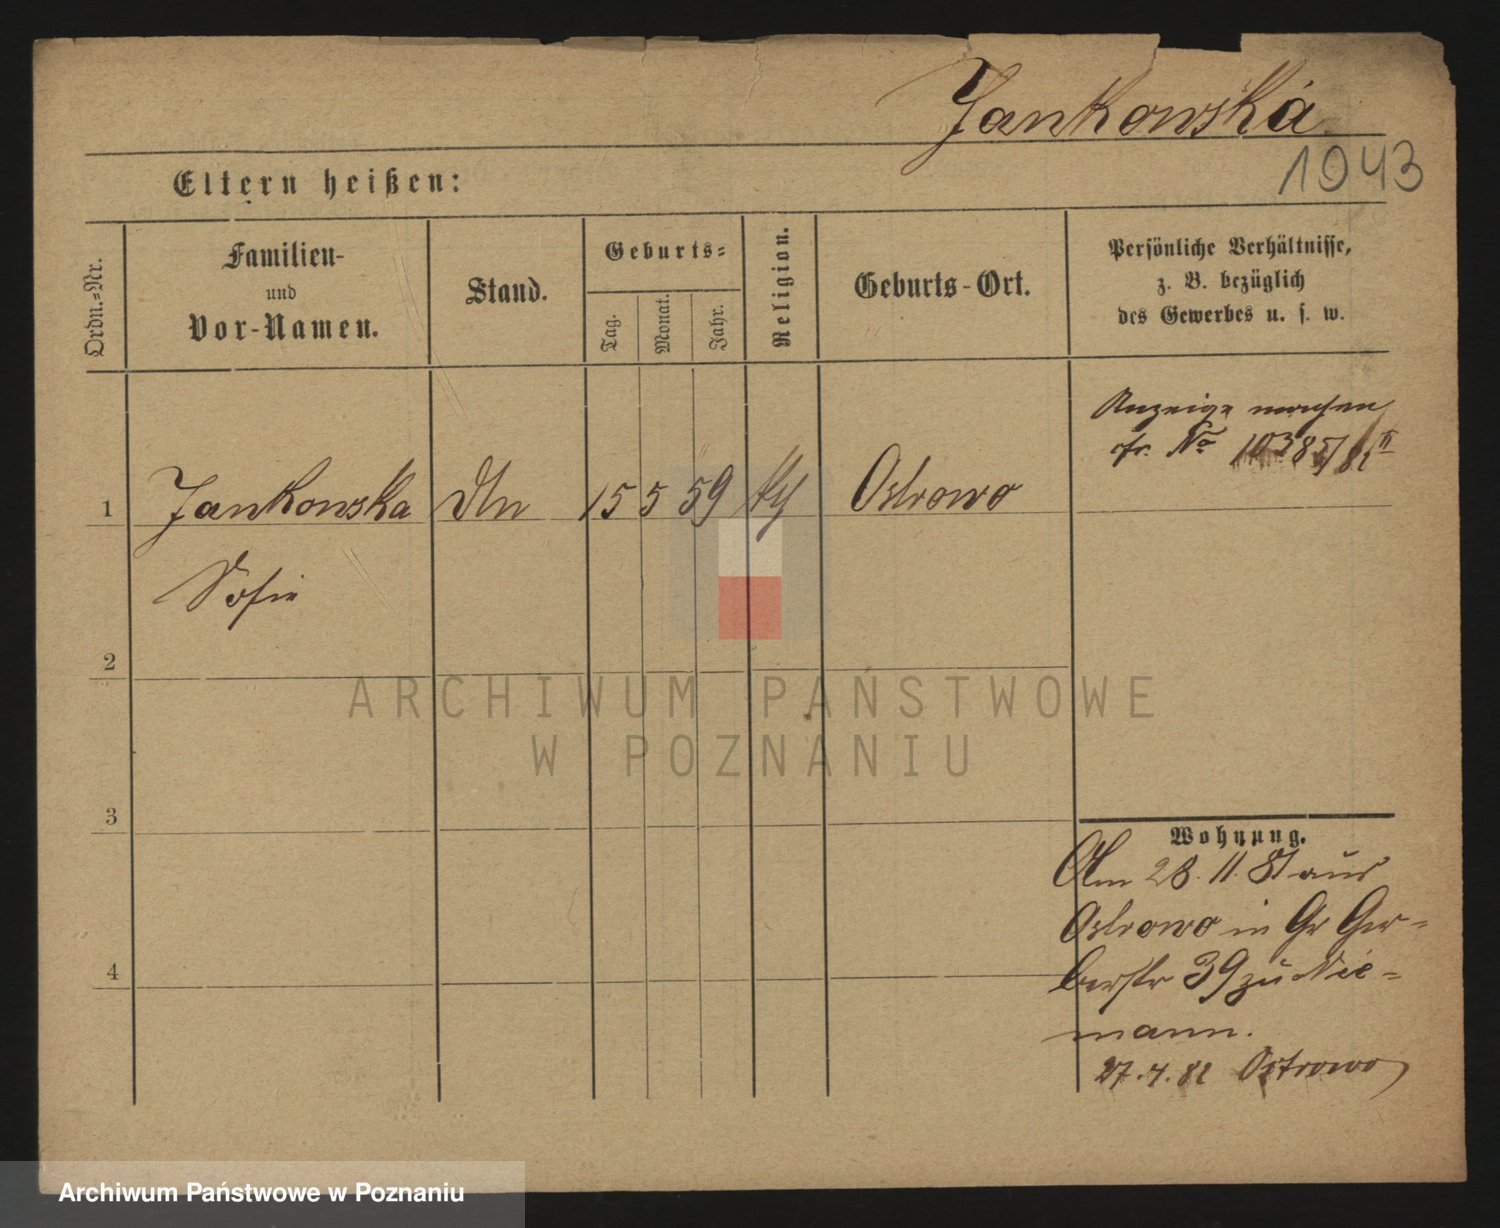 Jankowska
1943
Eltern heißen:
Ordn.-Nr.
Familien-
und
Vor-Namen.
Stand.
Geburts-
Tag.
Monat.
Jahr.
Religion.
Geburts-Ort.
Persönliche Verhältnisse,
z. B. bezüglich
des Gewerbes u. s. w.
Anzeige machen
cfr. No 10385/81 II
1 Jankowska 15 5 59 Ostrowo
Sofie
2
ARCHIWUM PAŃSTWOWE
W POZNANIU
3
Wohnung.
Am 28. 11. 81 aus
Ostrowo in Gr Ger-
berstr 39 zu Nie-
mann.
4
27.4.82 Ostrowo
Archiwum Państwowe w Poznaniu